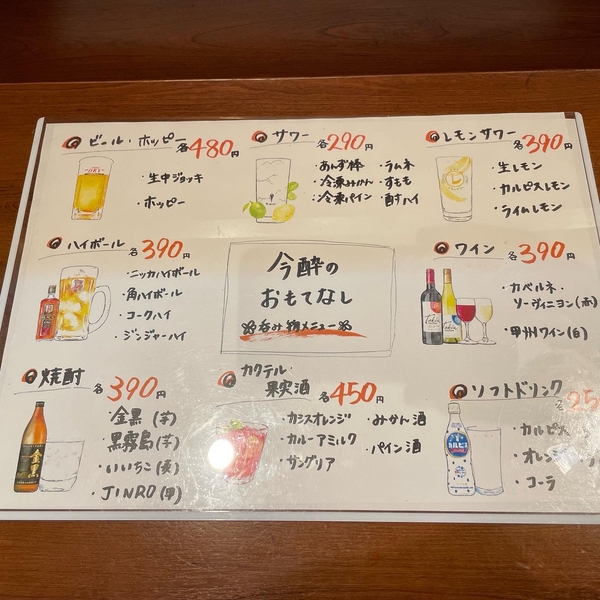 ビール・ホッピー 各480円
・生中ジョッキ
・ホッピー
サワー 各290円
・あんず棒 ・ラムネ
・冷凍みかん ・すもも
・冷凍パイン ・酎ハイ
レモンサワー 各390円
・生レモン
・カルピスレモン
・ライムレモン
ハイボール 各390円
・ニッカハイボール
・角ハイボール
・コークハイ
・ジンジャーハイ
今酔の
おもてなし
呑み物メニュー
ワイン 各390円
・カベルネ・
ソーヴィニヨン(赤)
・甲州ワイン(白)
焼酎 各390円
・金黒(芋)
・黒霧島(芋)
・いいちこ(麦)
・JINRO(甲)
金黒
カクテル・
果実酒 各450円
・カシスオレンジ ・みかん酒
・カルーアミルク ・パイン酒
・サングリア
ソフトドリンク
各25
・カルピス
・オレン
・コーラ
カルピス